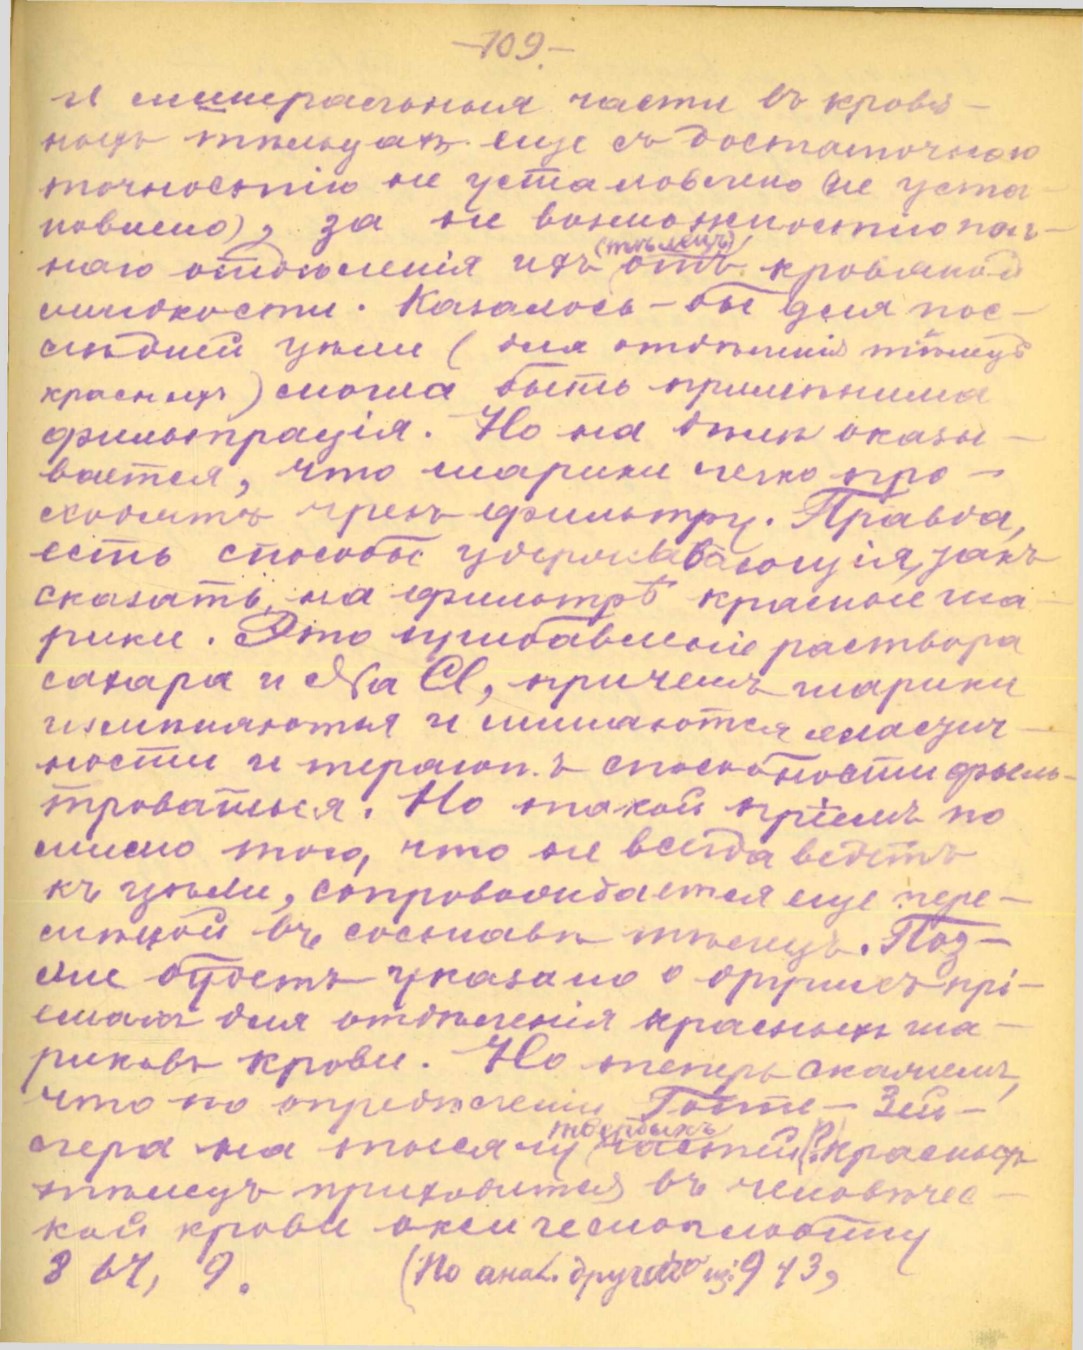 –109.–
и минеральныя части въ кровя-
ныхъ тѣльцахъ еще съ достаточною
точностію не установлено (не уста-
новлено), за не возможностію пол-
наго отдѣленія ихъ (тѣлецъ) отъ кровяной
жидкости. Казалось-бы для пос-
лѣдней цѣли (для отдѣленія тѣлецъ
красныхъ) могла быть примѣнима
фильтрація. Но на дѣлѣ оказы-
вается, что шарики легко про-
ходятъ чрезъ фильтру. Правда,
есть способы удерживающія, такъ
сказать, на фильтрѣ красные ша-
рики. Это прибавленіе раствора
сахара и NaCl, причемъ шарики
измѣняются и лишаются эластич-
ности и теряютъ способности филь-
троваться. Но такой пріемъ по
мимо того, что не всегда ведетъ
къ цѣли, сопровождается еще пере-
мѣной въ составѣ тѣлецъ. Поз-
же будетъ указано о другихъ прі-
емахъ для отдѣленія красныхъ ша-
риковъ крови. Но теперь скажемъ,
что по опредѣленію Гоппе-Зей-
лера на тысячу твердыхъ частей (?) красныхъ
тѣлецъ приходится въ человѣчес-
кой крови оксигемоглобину
867, 9. (По анал. другого из. 943,